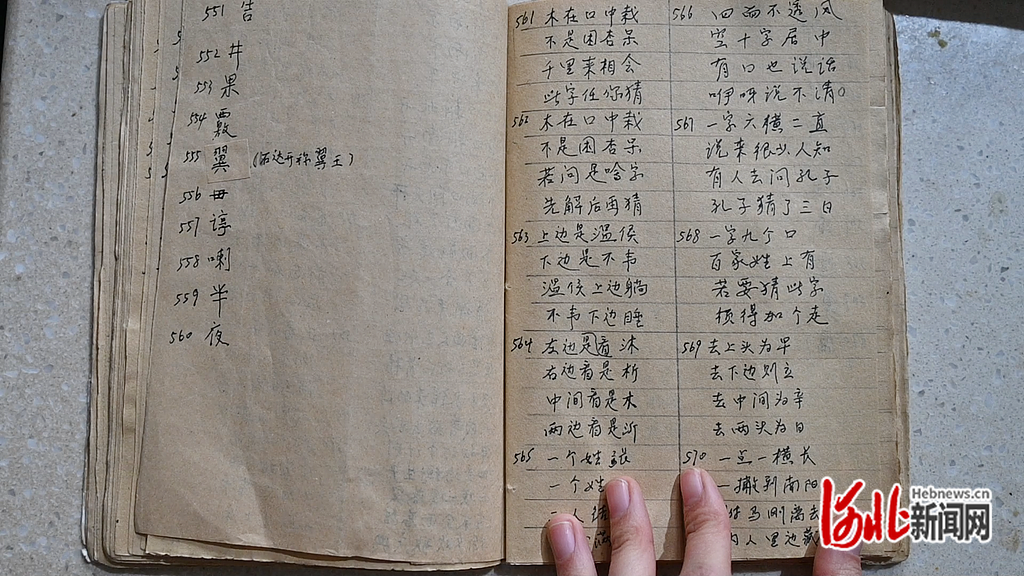 551 告
552 井
553 果
555 翼 (石达开称翼王)
556 毌
557 谆
558 喇
559 半
560 夜
561 木在口中栽
不是困杏呆
千里来相会
此字任你猜
562 木在口中栽
不是困杏呆
若问是啥字
先解后再猜
563 上边是温侯
下边是不韦
温侯上边躺
不韦下边睡
564 左边是看沐
右边看是析
中间看是木
两边看是沂
565 一个姓张
一个姓
二人
566 四面不透风
空十字居中
有口也说话
咿呀说不清。
567 一字六横二直
说来很少人知
有人去问孔子
孔子猜了三日
568 一字九个口
百家姓上有
若要猜此字
须得加个走
569 去上头为早
去下边则立
去中间为辛
去两头为日
570 一点一横长
一撇到南阳
马刚离去
内人里边藏
河北新闻网
Hebnews.cn